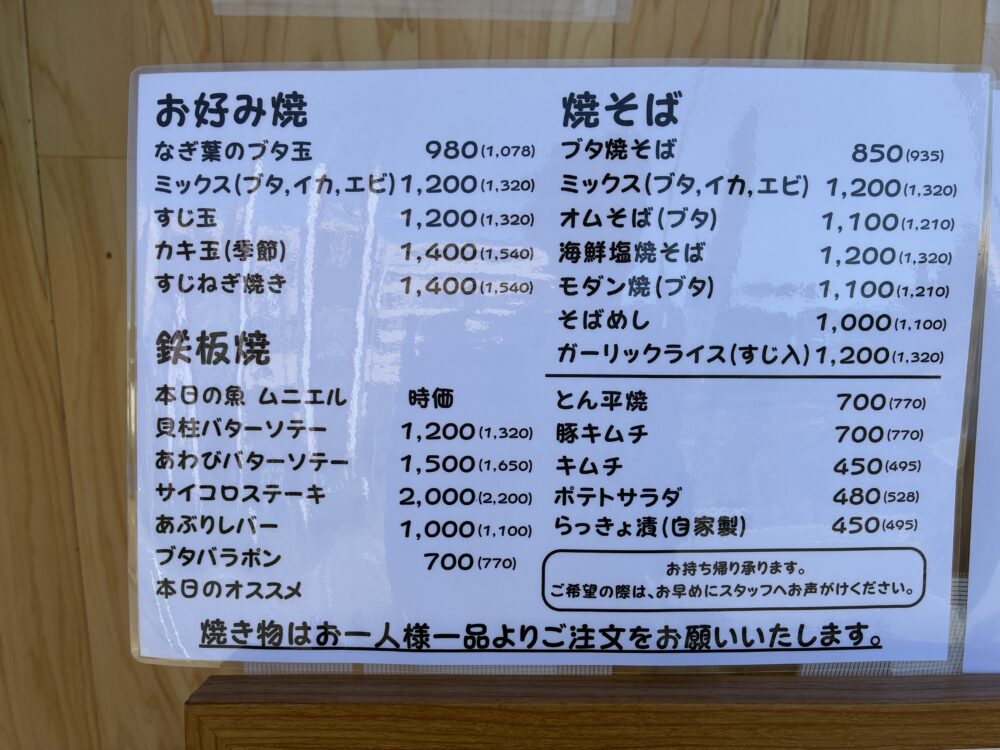 お好み焼
なぎ葉のブタ玉 980(1,078)
ミックス(ブタ,イカ,エビ) 1,200(1,320)
すじ玉 1,200(1,320)
カキ玉(季節) 1,400(1,540)
すじねぎ焼き 1,400(1,540)
鉄板焼
本日の魚 ムニエル 時価
貝柱バターソテー 1,200(1,320)
あわびバターソテー 1,500(1,650)
サイコロステーキ 2,000(2,200)
あぶりレバー 1,000(1,100)
ブタバラポン 700(770)
本日のオススメ
焼そば
ブタ焼そば 850(935)
ミックス(ブタ,イカ,エビ) 1,200(1,320)
オムそば(ブタ) 1,100(1,210)
海鮮塩焼そば 1,200(1,320)
モダン焼(ブタ) 1,100(1,210)
そばめし 1,000(1,100)
ガーリックライス(すじ入) 1,200(1,320)
とん平焼 700(770)
豚キムチ 700(770)
キムチ 450(495)
ポテトサラダ 480(528)
らっきょ漬(自家製) 450(495)
お持ち帰り承ります。
ご希望の際は、お早めにスタッフへお声がけください。
焼き物はお一人様一品よりご注文をお願いいたします。